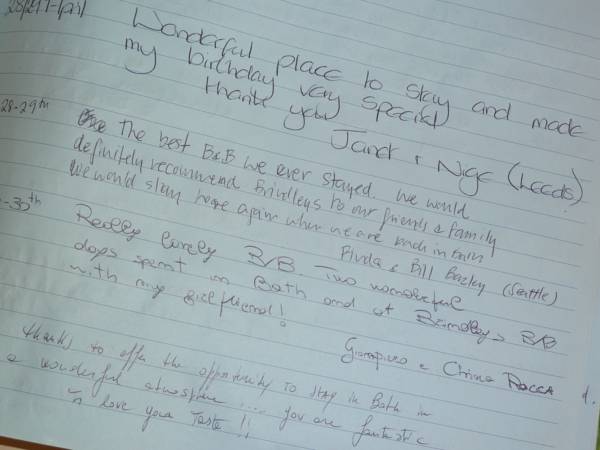 Wonderful place to stay and made
my birthday very special
thank you
Janet + Nige (Leeds)
28-29th
the best B&B we ever stayed. We would
definitely recommend Brindleys to our friends & family
We would stay here again when we are back in
& Bill (Seattle)
30th
Really lovely B/B. Two wonderful
days spent in Bath and at Brindleys B/B
with my girlfriend!
e
thanks to offer the opportunity to stay in Bath in
a wonderful atmosphere .... you are fantastic
love your taste !!